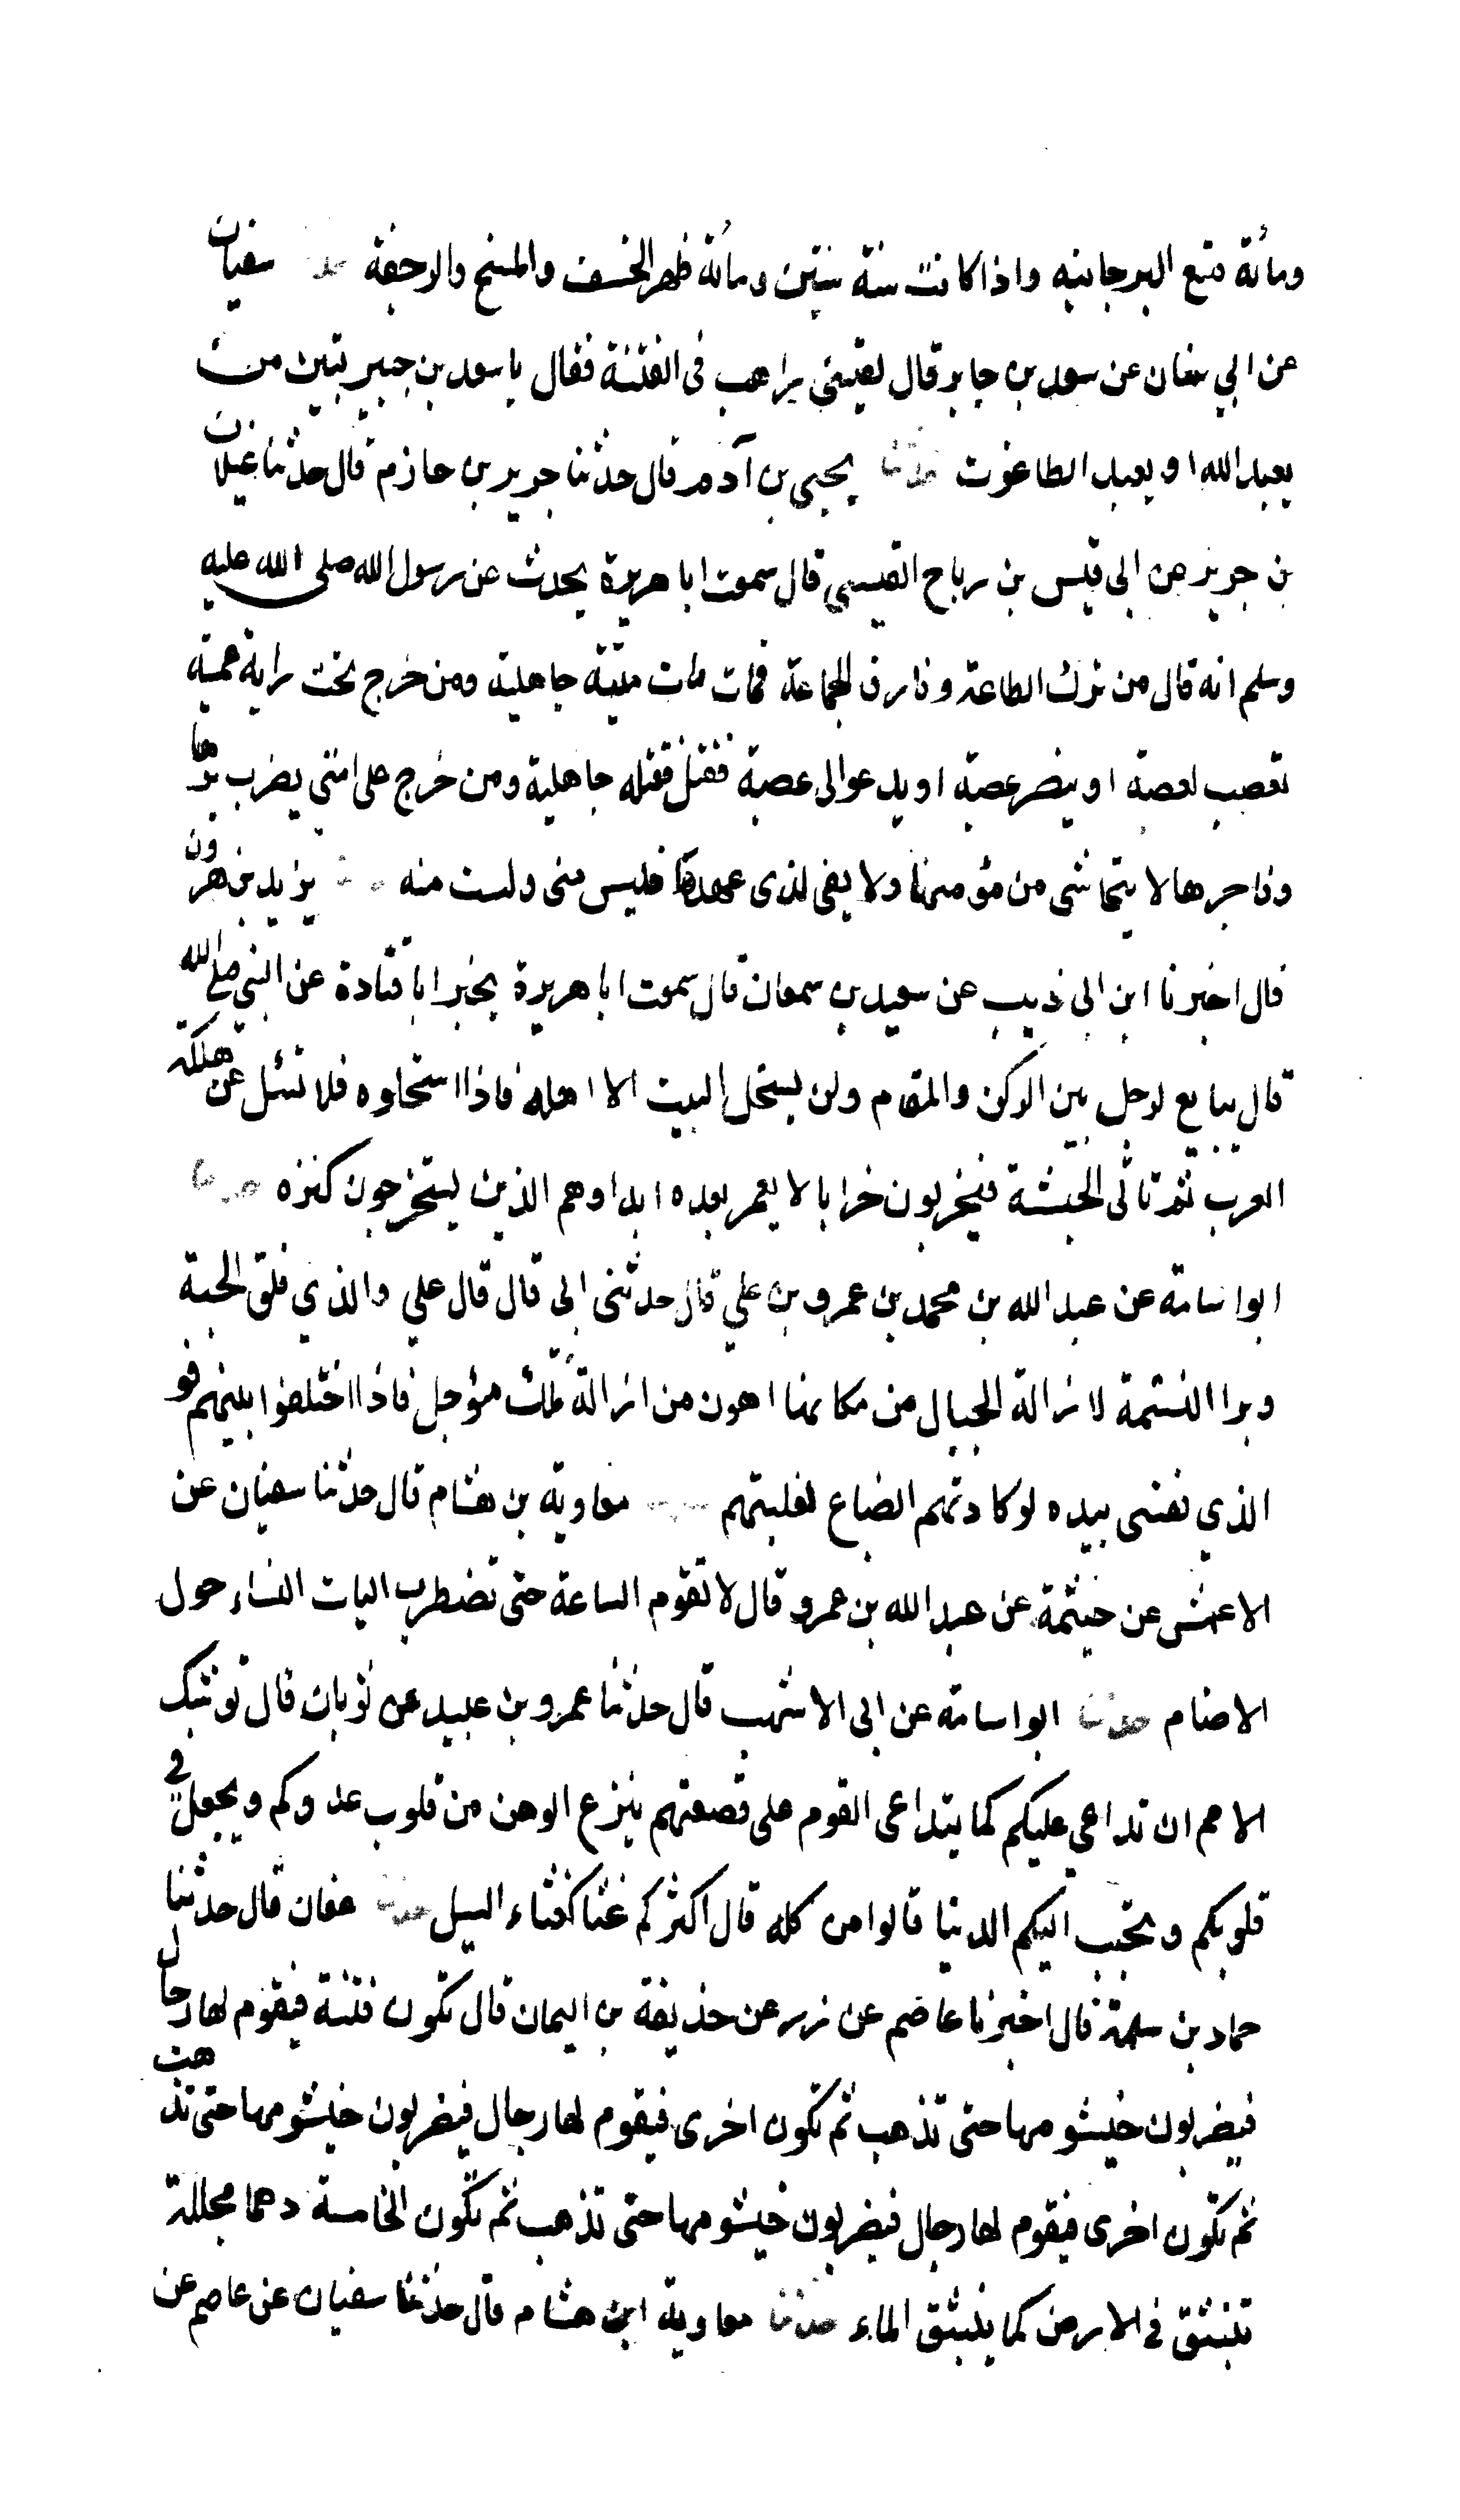 ومائة منع البر جانبه واذا كانت سنة ستين ومائة ظهر الخسف والمسخ والرجفة حدثنا سفيان
عن ابي سنان عن سعيد بن جابر قال لقيني راهب في الفتنة فقال يا سعيد بن جبير تبين من
يعبد الله او يعبد الطاغوت حدثنا يحيى بن آدم قال حدثنا جرير بن حازم قال حدثنا غيلان
بن جرير عن ابى قيس بن رباح القيسي قال سمعت ابا هريرة يحدث عن رسول الله صلى الله عليه
وسلم انه قال من ترك الطاعة وفارق الجماعة فمات مات ميتة جاهلية ومن خرج تحت راية عمية
تعصب لعصبة او ينصر عصبة او يدعو الى عصبة فقتل فقتله جاهلية ومن خرج على امتي يضرب برها
وفاجرها لا يتحاشى من مؤمنها ولا يفى لذى عهدها فليس منى ولست منه حدثنا يزيد بن هرون
قال اخبرنا ابن ابى ذيب عن سعيد بن سمعان قال سمعت ابا هريرة يخبر ابا قتادة عن النبي صلى الله
قال يبايع لرجل بين الركن والمقام ولن يستحل البيت الا اهله فاذا استحلوه فلا تسئل عن هلكة
العرب ثم تاتى الحبشة فيخربون خرابا لا يعمر بعده ابدا وهم الذين يستخرجون كنزه حدثنا
ابو اسامة عن عبد الله بن محمد بن عمرو بن علي قال حدثنى ابى قال قال علي والذي فلق الحبة
وبرا النسمة لازالة الجبال من مكانها اهون من ازالة ملك مؤجل فاذا اختلفوا بينهم فو
الذي نفسي بيده لو كادتهم الضباع لغلبتهم حدثنا معاوية بن هشام قال حدثنا سفيان عن
الاعمش عن خيثمة عن عبد الله بن عمرو قال لا تقوم الساعة حتى تضطرب اليات النساء حول
الاصنام حدثنا ابو اسامة عن ابى الاشهب قال حدثنا عمرو بن عبيد عن ثوبان قال توشك
الامم ان تداعي عليكم كما يتداعى القوم على قصعتهم ينزع الوهن من قلوب عدوكم ويجعل في
قلوبكم وتحبب اليكم الدنيا قالوا من كله قال اكثركم غثا كغثاء السيل حدثنا عفان قال حدثنا
حماد بن سلمة قال اخبرنا عاصم عن زر عن حذيفة بن اليمان قال تكون فتنة فيقوم لها رجال
فيضربون خيشومها حتى تذهب ثم تكون اخرى فيقوم لها رجال فيضربون خيشومها حتى تذهب
ثم تكون اخرى فيقوم لها رجال فيضربون خيشومها حتى تذهب ثم تكون الخامسة دهما مجللة
تنبثق في الارض كما ينبثق الماء حدثنا معاوية ابن هشام قال حدثنا سفيان عن عاصم عن